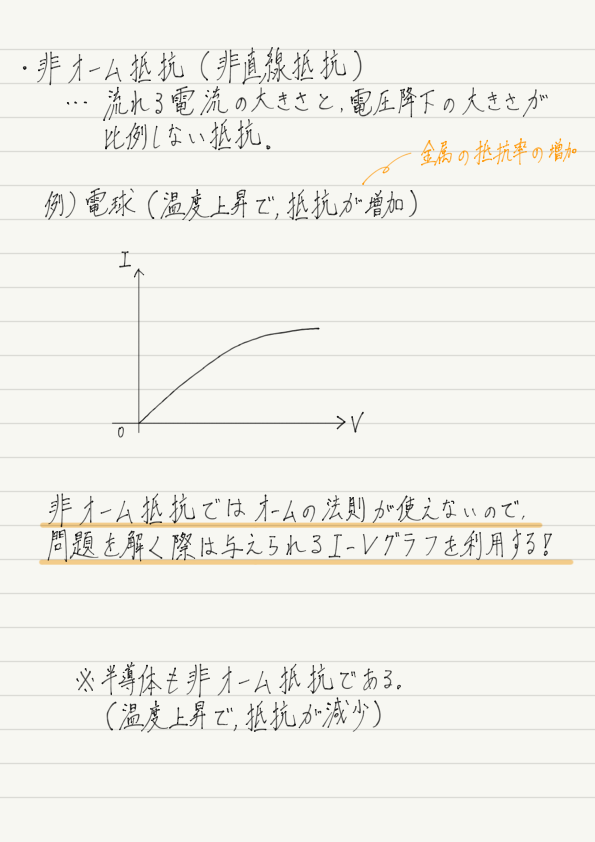 ・非オーム抵抗（非直線抵抗）
… 流れる電流の大きさと、電圧降下の大きさが
比例しない抵抗。
金属の抵抗率の増加
例）電球（温度上昇で、抵抗が増加）
I
0
V
非オーム抵抗ではオームの法則が使えないので、
問題を解く際は与えられるI-Vグラフを利用する!
※半導体も非オーム抵抗である。
（温度上昇で、抵抗が減少）